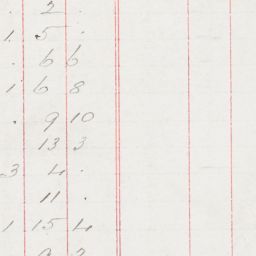 . 2 .
1. 5 .
. 6 6
1 6 8
. 9 10
13 3
3 4 .
11 .
1 15 4
9 2